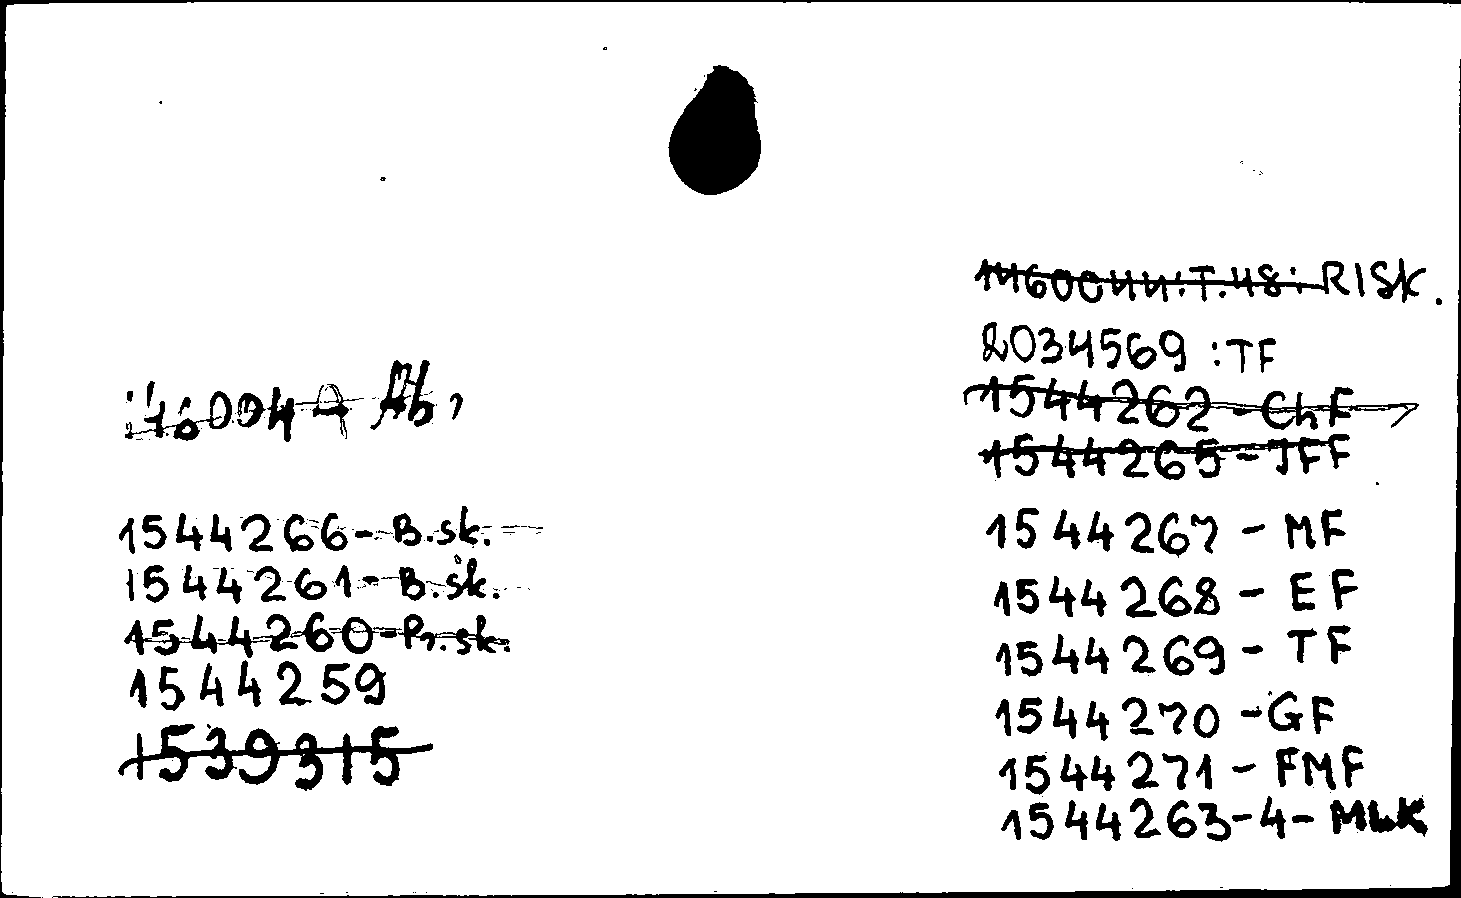 146004 - Ab,
1544266 - B.sk.
1544261 - B.sk.
1544260 - Pr.sk.
1544259
1539315
1460044:T.48: RISK.
2034569 :TF
1544262 - ChF
1544265 - JFF
1544267 - MF
1544268 - EF
1544269 - TF
1544270 - GF
1544271 - FMF
1544263-4- MLK